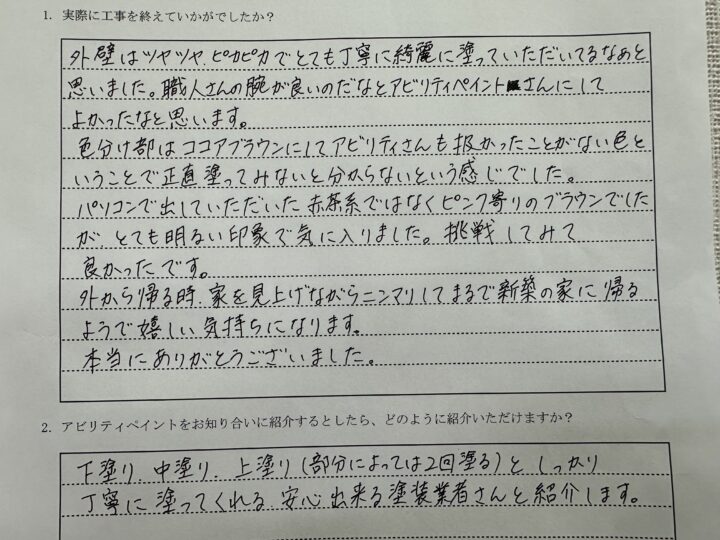 1. 実際に工事を終えていかがでしたか？
外壁はツヤツヤ、ピカピカでとても丁寧に綺麗に塗っていただいてるなあと
思いました。職人さんの腕が良いのだなとアビリティペイントさんにして
よかったなと思います。
色分け部はココアブラウンにしてアビリティさんも扱かったことがない色と
いうことで正直塗ってみないと分からないという感じでした。
パソコンで出していただいた赤茶系ではなくピンク寄りのブラウンでした
が、とても明るい印象で気に入りました。挑戦してみて
良かったです。
外から帰る時、家を見上げながらニンマリしてまるで新築の家に帰る
ようで嬉しい気持ちになります。
本当にありがとうございました。
2. アビリティペイントをお知り合いに紹介するとしたら、どのように紹介いただけますか？
下塗り、中塗り、上塗り（部分によっては2回塗る）としっかり
丁寧に塗ってくれる、安心出来る塗装業者さんと紹介します。